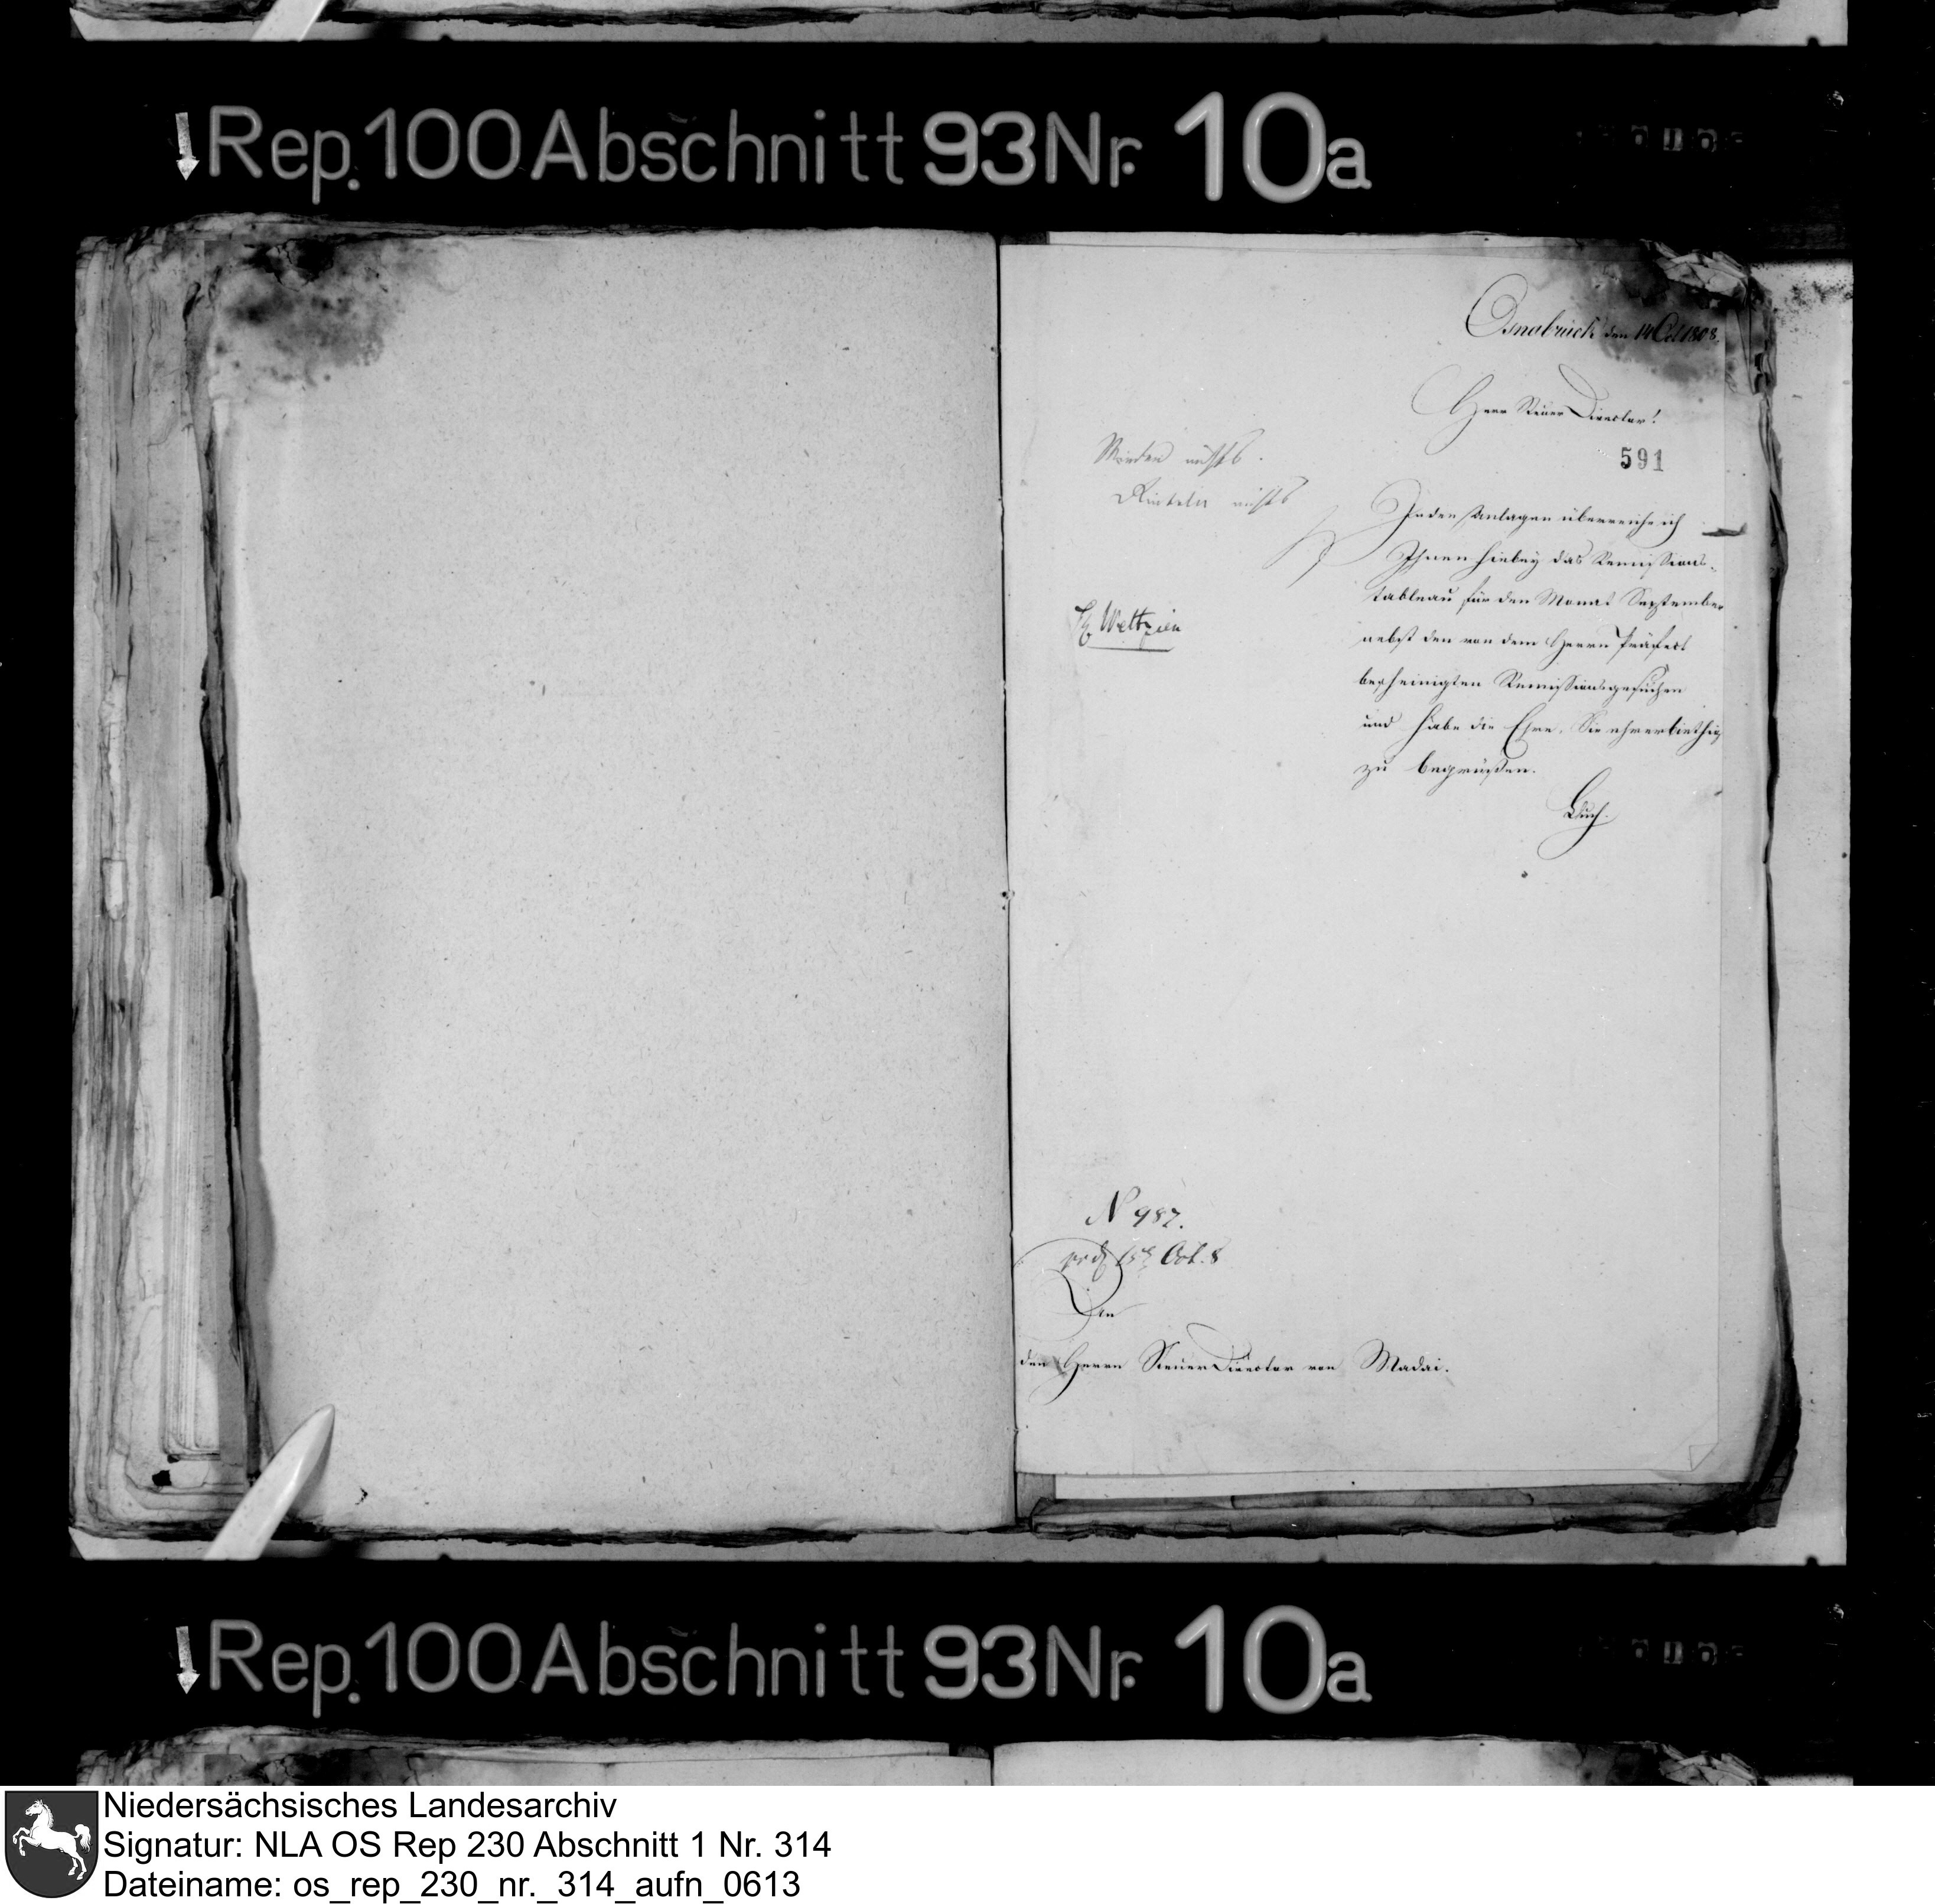 Rep. 100 Abschnitt 93 Nr. 10a
Osnabrück den 14 Oct 1808.
Herr Steuer Director!
591
Minden nichts.
Rinteln nichts
In den Anlagen überreiche ich
Ihnen hiebey das Remissions-
tableau für den Monat September
nebst den von dem Herrn Präfect
bescheinigten Remissionsgesuchen
und habe die Ehre, Sie ehrerbiethig
zu begrüßen.
H Weltzien
N 987.
15 Oct. 8
An
den Herrn Steuer Director von Madai.
Rep. 100 Abschnitt 93 Nr. 10a
Niedersächsisches Landesarchiv
Signatur: NLA OS Rep 230 Abschnitt 1 Nr. 314
Dateiname: os_rep_230_nr._314_aufn_0613